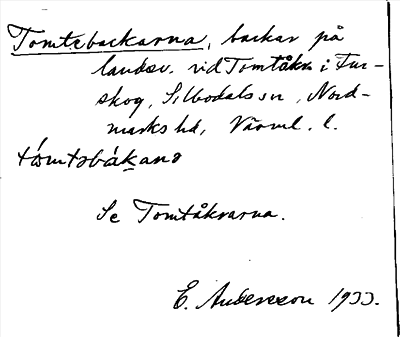 Tomtebackarna, backar på
landsv. vid Tomtåkr i Fur-
skog, Silbodals sn, Nord-
marks hd, Värml. l.
tómtəbákana
Se Tomtåkrarna.
E. Andersson 1933.